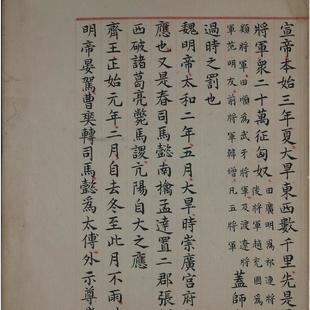 宣帝本始三年夏大旱東西數千里先是
將軍衆二十萬征匈奴
田廣明爲祁連將
後將軍趙充國爲
顙將軍田順爲武牙將軍及渡遼將
軍范明友前將軍韓增凡五將軍
蓋師
過時之罰也
魏明帝太和二年五月大旱時崇廣宮府
應也又是春司馬懿南擒孟達置二郡張
西破諸葛亮斃馬謖亢陽自大之應
齊王正始元年二月自去冬至此月不雨
明帝晏駕曹爽轉司馬懿爲太傅外示尊